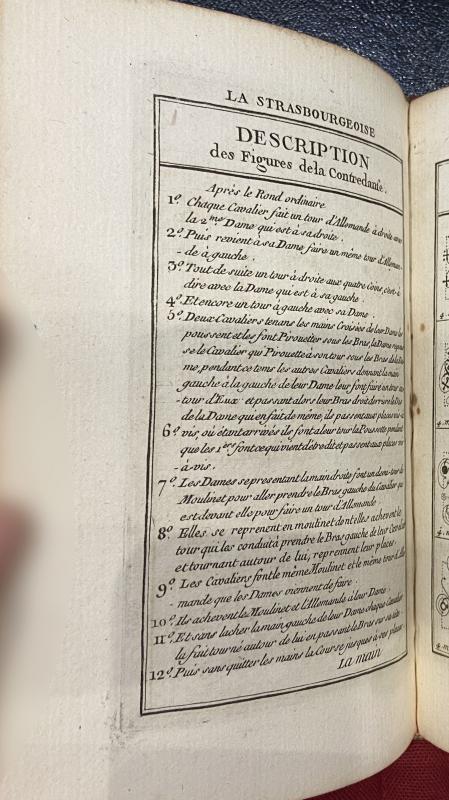 LA STRASBOURGEOISE
DESCRIPTION
des Figures dela Contredanse.
Après le Rond ordinaire
1º. Chaque Cavalier fait un tour d'Allemande à droite avec
la 2me Dame qui est à sa droite.
2º. Puis revient à sa Dame faire un même tour d'Alleman-
-de à gauche.
3º. Tout de suite un tour à droite aux quatre Coins, c'est-à
dire avec la Dame qui est à sa gauche.
4º. Et encore un tour à gauche avec sa Dame.
5º. Deux Cavaliers tenans les mains Croisées de leur Dames les
poussent et les font Pirouetter sous les Bras, la Dame
se le Cavalier qui Pirouette à son tour sous les Bras de la Da
me, pendant ce tems les autres Cavaliers donnant la main
gauche à la gauche de leur Dame leur font faire un tour au-
-tour d'Eux et passant alors leur Bras droit derriere le Dos
de la Dame qui en fait de même, ils passent aux places vis-à
6º. vis, où étant arrivés ils font aleur tour la Poussette pendant
que les 1ers font ce qui vient d'être dit et passent aux places vis
-à-vis.
7º. Les Dames se presentant la main droite font un demi-tour de
Moulinet pour aller prendre le Bras gauche du Cavalier qui
est devant elle pour faire un tour d'Allemande
8º. Elles se reprenent en moulinet dont elles achevent le
tour qui les conduit à prendre le Bras gauche de leur Cavalier
et tournant autour de lui, reprennent leur places,
9º. Les Cavaliers font le même Moulinet et le même tour d'Alle
-mande que les Dames viennent de faire.
10º. Ils achevent le Moulinet et l'Allemande à leur Dame.
11º. Et sans lacher la main gauche de leur Dame chaque Cavalier
la fait tourné autour de lui en passant le Bras sur sa tête
12º. Puis sans quitter les mains la Course jusques à leur places
La main